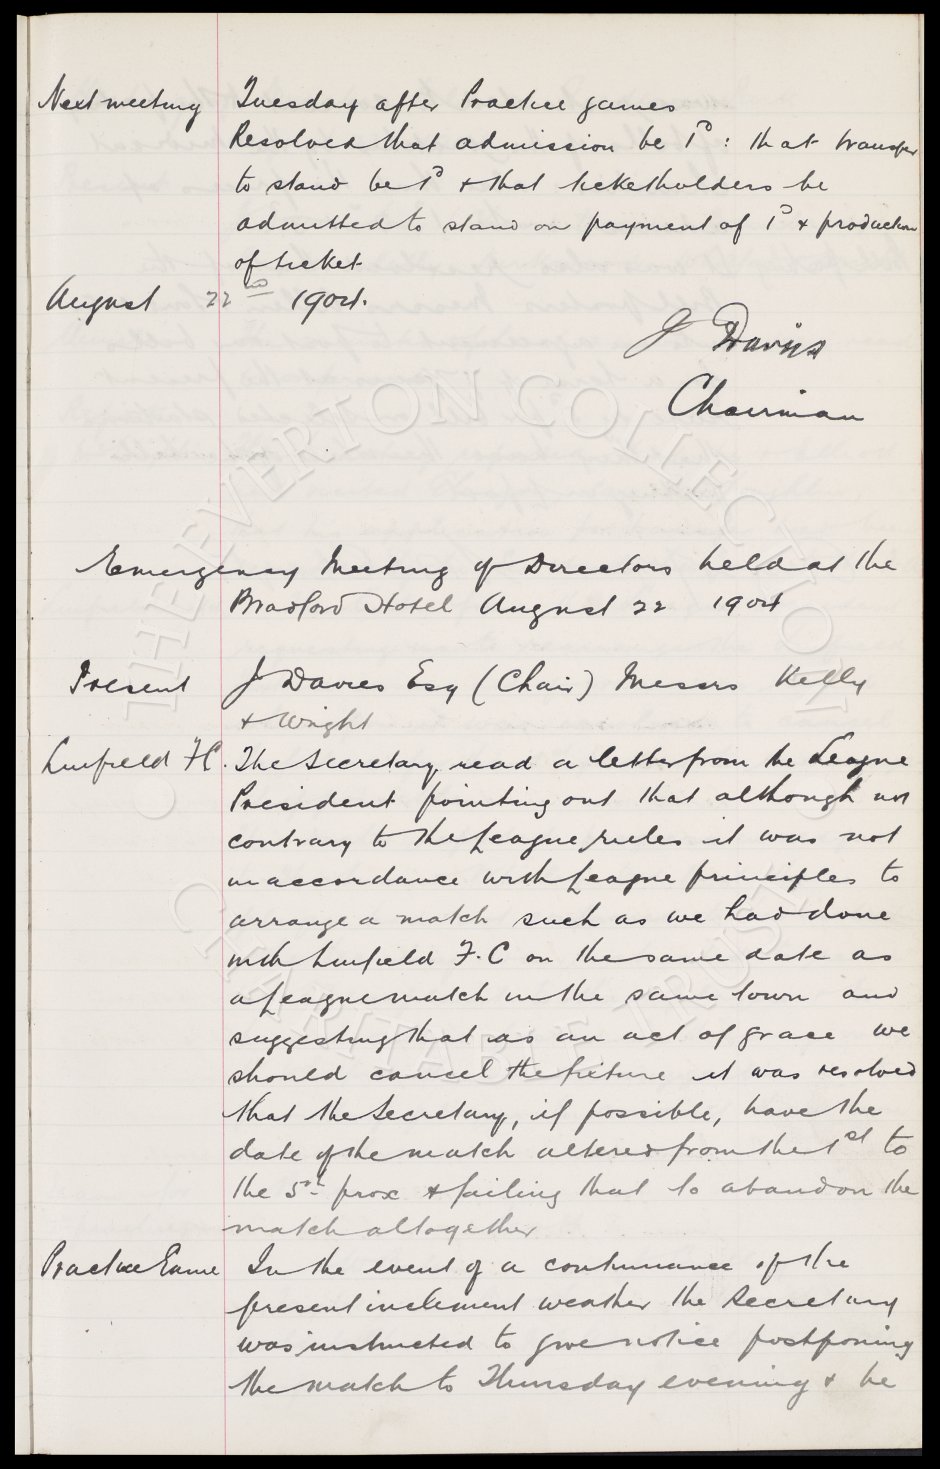 Next meeting Tuesday after Practice games
Resolved that admission be 1D : that transfer
to stand be 1D & that ticketholders be
admitted to stand on payment of 1D & production
of ticket
August 22nd 1904.
J Davies
Chairman
Emergency Meeting of Directors held at the
Bradford Hotel August 22 1904
Present J Davies Esq (Chair) Messrs Kelly
& Wright
Linfield FC. The Secretary read a letter from the League
President pointing out that although not
contrary to the League rules it was not
in accordance with League principles to
arrange a match such as we had done
with Linfield F.C on the same date as
a League match in the same town and
suggesting that as an act of grace we
should cancel the fixture it was resolved
that the Secretary, if possible, have the
date of the match altered from the 1st to
the 5th prox & failing that to abandon the
match altogether
Practice Game In the event of a continuance of the
present inclement weather the Secretary
was instructed to give notice postponing
the match to Thursday evening & he
THE EVERTON COLLECTION
CHARITABLE TRUST